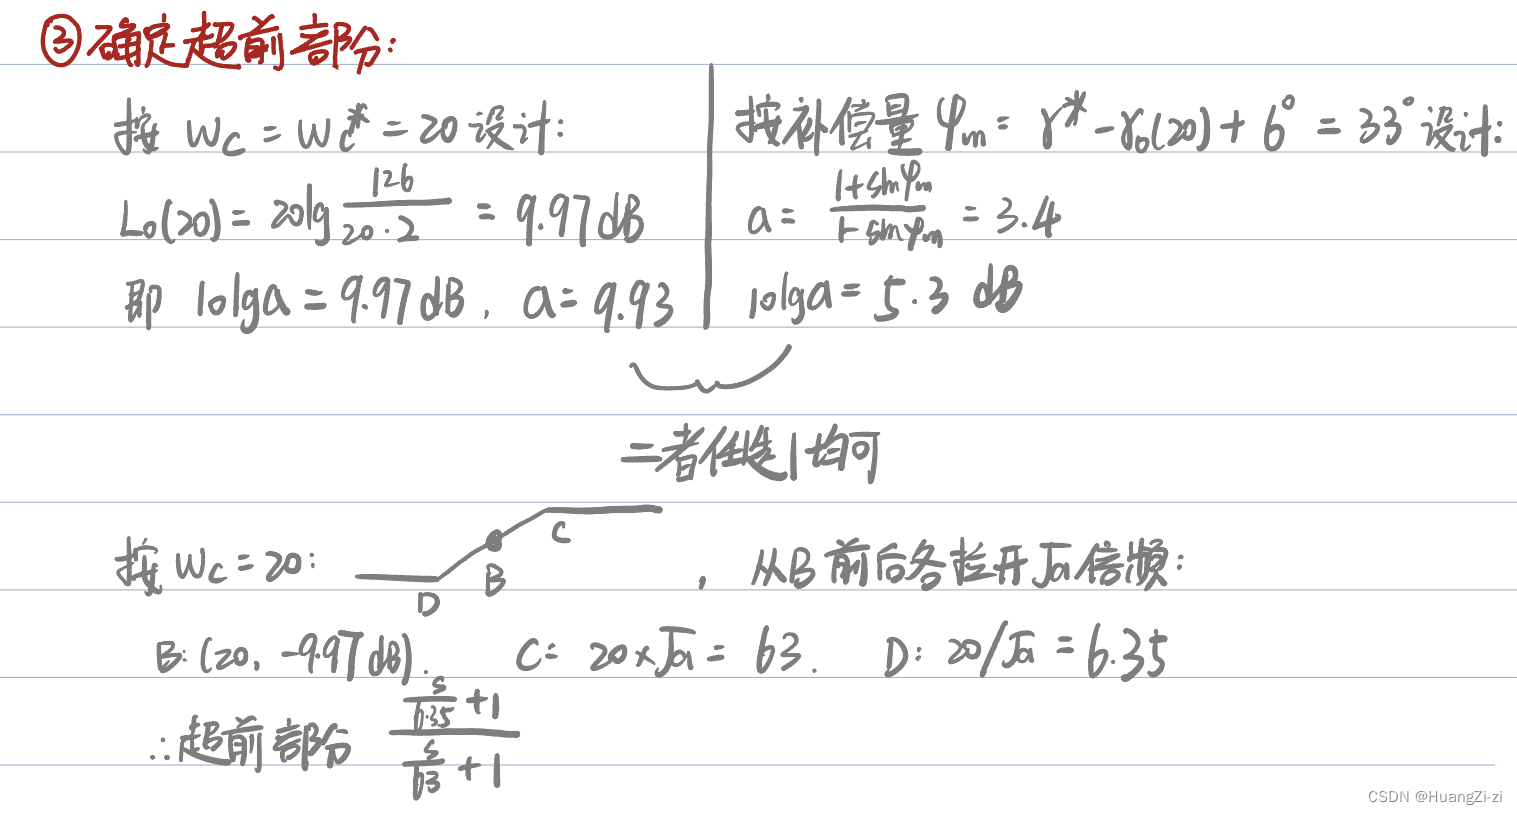 ③确定超前部分:
按 Wc = Wc* = 20 设计:
L₀(20) = 20lg 126/(20·2) = 9.97dB
即 10lga = 9.97dB, a = 9.93
按补偿量 φm = γ* - γ₀(20) + 6° = 33° 设计:
a = (1+sinφm)/(1-sinφm) = 3.4
10lga = 5.3 dB
二者任选1均可
按 Wc = 20:
D B C
, 从B前后各拉开√a倍频:
B: (20, -9.97dB). C: 20×√a = 63. D: 20/√a = 6.35
∴超前部分 (s/6.35 + 1)/(s/63 + 1)
CSDN @HuangZi-zi